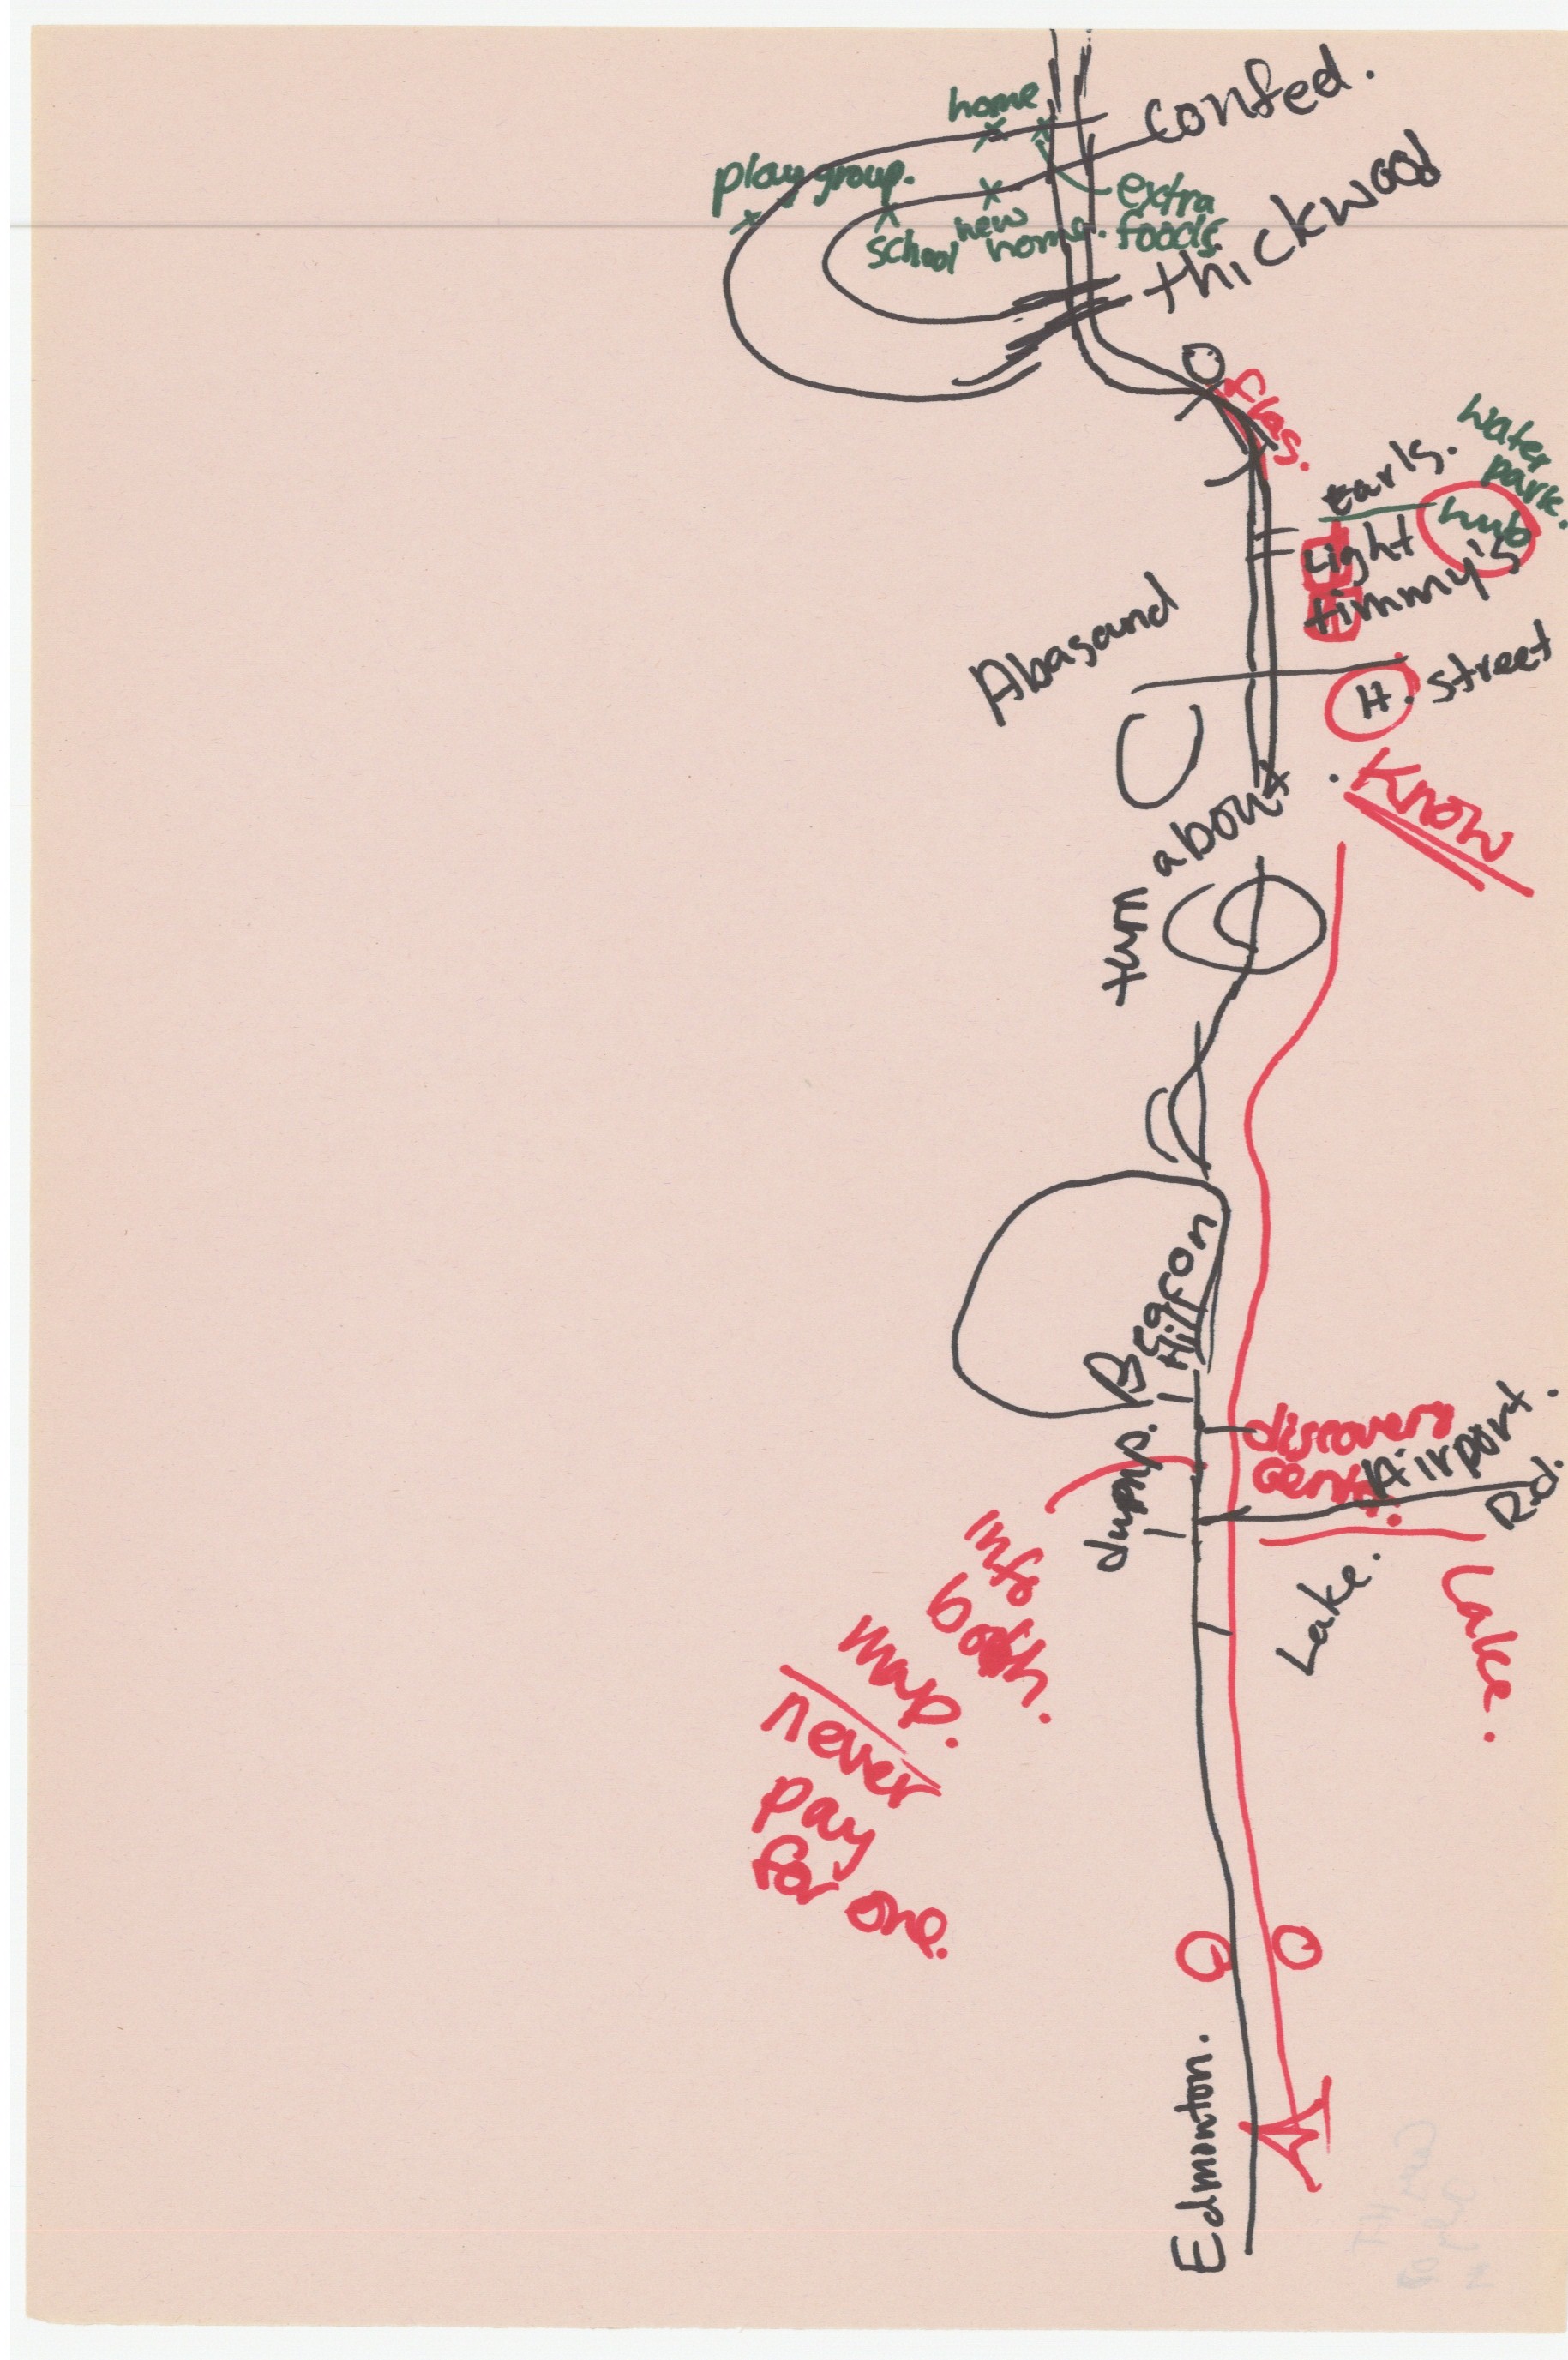 home
Confed.
playgroup.
extra
foods.
new
home.
school
thickwood
flas.
water
park.
Earls.
hub
Light
timmy's
Abasand
H. street
Know
turn about
Beacon
Hill
discovery
Airport.
Rd.
dump.
Lake.
Lake.
info
booth.
map.
never
pay
for one.
Edmonton.